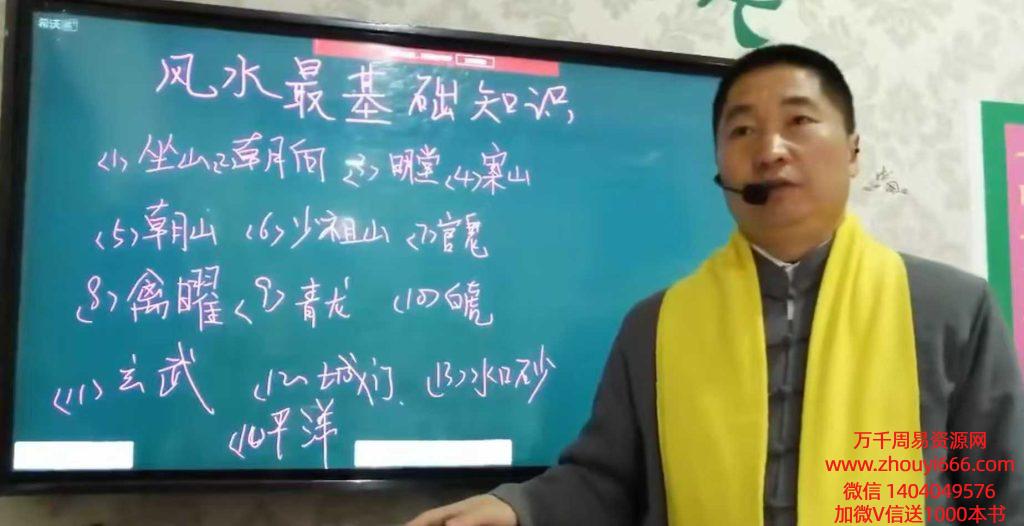 希沃
风水最基础知识,
(1)坐山(2)朝向(3)明堂(4)案山
(5)朝山(6)少祖山(7)官鬼
(8)禽曜(9)青龙(10)白虎
(11)玄武(12)城门、(13)水口砂
平洋
万千周易资源网
www.zhouyi666.com
微信 1404049576
加微V信送1000本书